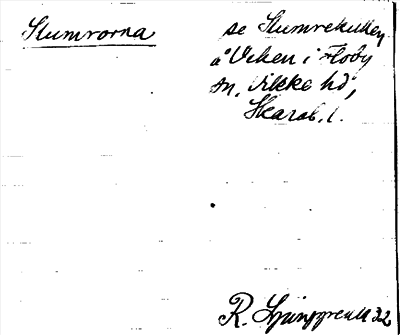 Slumrorna
se Slumrekullen
å Veken i Floby
sn, Vilske hd,
Skarab. l.
R. Ljunggren 32